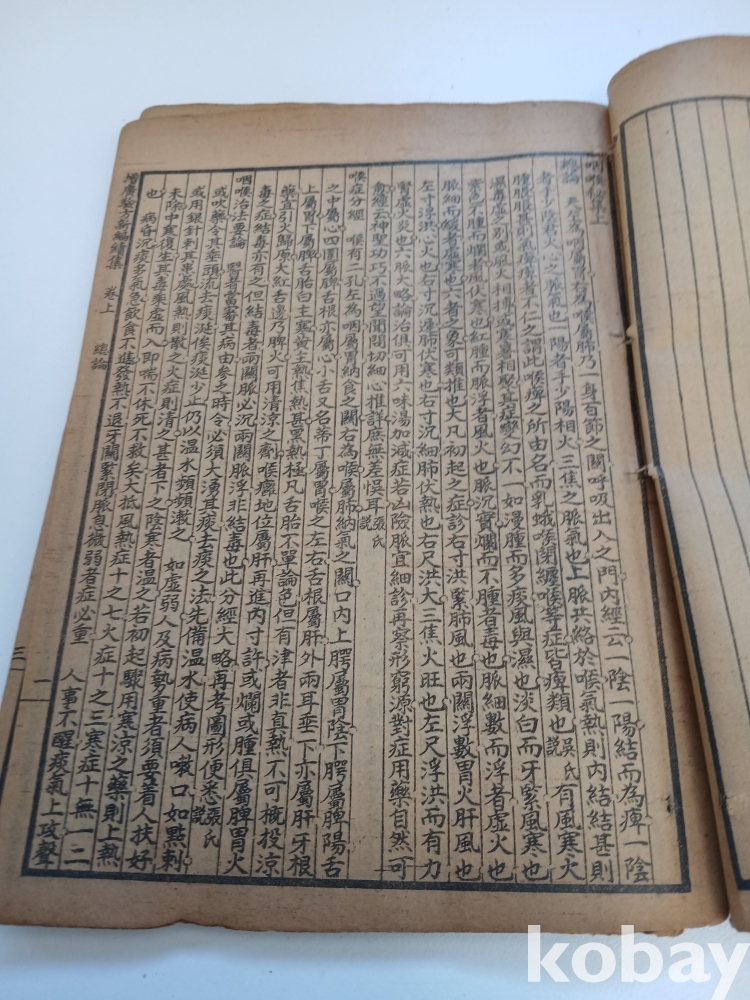 咽喉秘集上
總論 夫左為咽屬胃右為喉屬肺乃一身百節之關呼吸出入之門內經云一陰一陽結而為痺一陰
者手少陰君火心之脈氣也一陽者手少陽相火三焦之脈氣也上脈共絡於喉氣熱則內結結甚則
腫脹脹甚則氣痺痺者不仁之謂此喉痺之所由名而乳蛾喉閉纏喉等症皆痺類也吳氏說 有風寒火
濕毒虛之別或風火相搏或寒暑相聚其症變幻不一如漫腫而多痰風與濕也淡白而牙緊風寒也
紫色不腫而爛者伏寒也紅腫而脈浮者風火也脈沉實爛而不腫者毒也脈細數而浮者虛火也
脈細而緩者虛寒也六者之象可類推也大凡初起之症診右寸洪緊肺風也兩關浮數胃火肝風也
左寸浮洪心火也右寸沉遲肺伏寒也右寸沉細肺伏熱也右尺洪大三焦火旺也左尺浮洪而有力
腎虛火炎也六脈大略論治俱可用六味湯加減症若凶險脈宜細診再察形窮源對症用藥自然可
愈經云神聖功巧不過望聞問切細心推詳庶無差悞耳張氏說
喉症分經 喉有二孔左為咽屬胃納食之關右為喉屬肺納氣之關口內上腭屬胃陰下腭屬脾陽舌
之中屬心四圍屬脾舌根亦屬心小舌又名蒂丁屬胃喉之左右舌根屬肝外兩耳垂下亦屬肝牙根
上屬胃下屬脾舌胎白主寒黃主熱焦熱甚黑熱極凡舌胎不單論色但有津者非直熱不可概投涼
藥宜引火歸原大紅舌邊乃脾火可用清涼之劑喉癰地位屬肝再進內寸許或爛或腫俱屬脾胃火
毒之症結毒亦有之但結毒者兩關脈必沉兩關脈浮非結毒也此分經大略再考圖形便悉張氏說
咽喉治法要論 醫者當審其病由參之時令必須大湧其痰去痰之法先備温水使病人嗽口如點刺
或吹藥令其垂頭流去痰涎俟痰涎少止仍以温水頻頻漱之 如虛弱人及病勢重者須要着人扶好
或用銀針刺其患處風熱則散之火症則清之甚者下之陰寒者温之若初起驟用寒涼之藥則上熱
未除中寒復生其毒乘虛而入即喘不休死不救矣大抵風熱症十之七火症十之三寒症十無一二
也 病昏沉痰多氣急飲食不進發熱不退牙關緊閉脈息微弱者症必重 人事不醒痰氣上攻聲
增廣驗方新編續集 卷上 總論
一
三
kobay